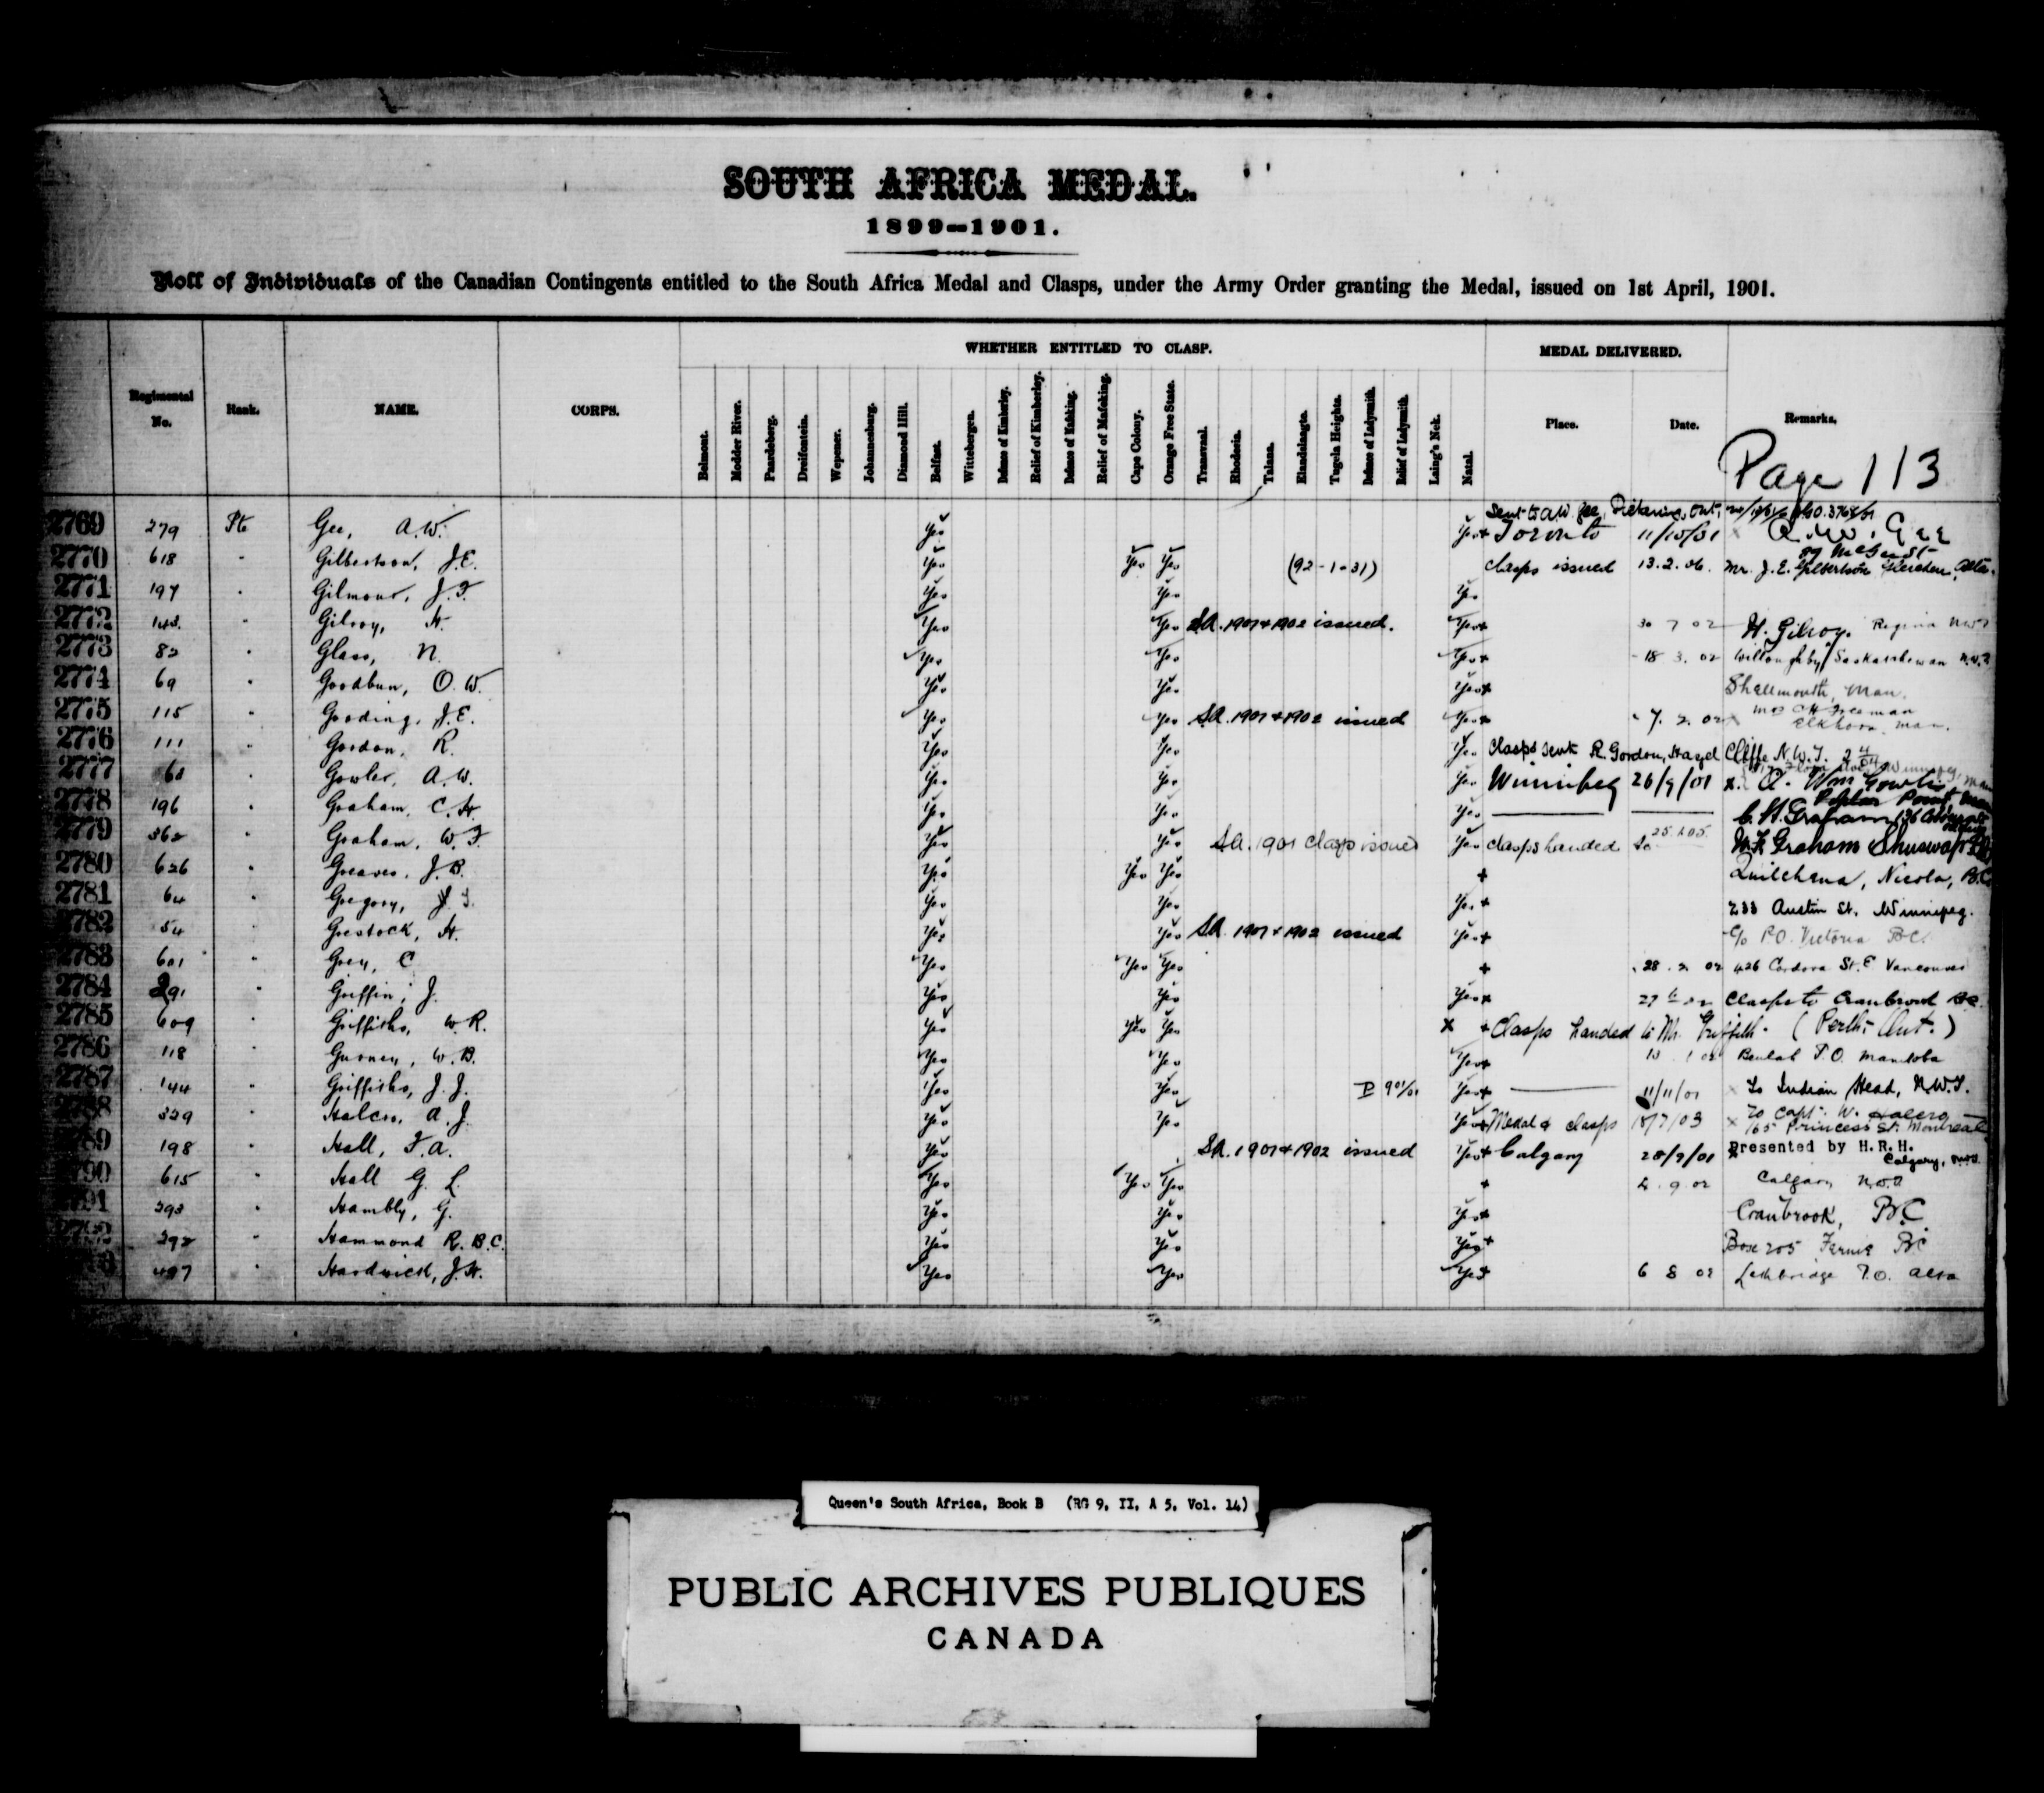 SOUTH AFRICA MEDAL.
1899-1901.
Roll of Individuals of the Canadian Contingents entitled to the South Africa Medal and Clasps, under the Army Order granting the Medal, issued on 1st April, 1901.
WHETHER ENTITLED TO CLASP. MEDAL DELIVERED.
Regimental No. Rank. NAME. CORPS. Belmont. Modder River. Paardeberg. Dreifontein. Wepener. Johannesburg. Diamond Hill. Belfast. Wittebergen. Defense of Kimberley. Relief of Kimberley. Defense of Mafeking. Relief of Mafeking. Cape Colony. Orange Free State. Transvaal. Rhodesia. Talana. Elandslaagte. Tugela Heights. Defense of Ladysmith. Relief of Ladysmith. Laing's Nek. Natal. Place. Date. Remarks.
Page 113
Sent to A.W. Gee, Pickering, Ont.
2769 279 Pt Gee, A.W. Yes Yes+ Toronto 11/10/01 x A. W. Gee
2770 618 " Gilbertson, J.E. Yes Yes Yes (92-1-31) Clasps issued 13.2.06. Mr. J.E. Gilbertson Alta.
2771 197 " Gilmour, J.F. Yes Yes Yes
2772 143 " Gilroy, H. Yes Yes SA. 1901 & 1902 issued. Yes+ 30 7 02 H. Gilroy. Regina NWT
2773 82 " Glass, N. Yes Yes Yes+ 18 3. 02 Willoughby Saskatchewan N.W.T.
2774 69 " Goodbun, O.W. Yes Yes Yes+ Shellmouth, Man.
2775 115 " Gooding, J.E. Yes Yes SA. 1901 & 1902 issued Yes+ 7. 2. 02 x Mrs CH Freeman Elkhorn, Man.
2776 111 " Gordon, R. Yes Yes Yes Clasps sent R. Gordon, Hazel Cliffe N.W.T.
2777 " Gowler, A.W. Yes Yes Yes Winnipeg 26/9/01 x A. Wm Gowler
Poplar Point, Man
2778 196 " Graham, C.H. Yes Yes Yes C. H. Graham
2779 362 " Graham, W.F. Yes Yes SA. 1901 Clasp issued Yes Clasps handed to 25.1.05. W.F. Graham Shuswap
2780 626 " Greaves, J.B. Yes Yes Yes + Quilchena, Nicola, B.C.
2781 64 " Gregory, J. Yes Yes Yes+ 233 Austin St. Winnipeg.
2782 54 " Grestock, H. Yes Yes SA. 1901 & 1902 issued Yes+ c/o P.O. Victoria B.C.
2783 601 " Grey, C Yes Yes Yes + 28. 2. 02 426 Cordova St. E Vancouver
2784 291 " Griffin, J. Yes Yes Yes+ 27 02 Clasps to Cranbrook B.C.
2785 609 " Griffiths, W.R. Yes Yes Yes x + Clasps handed to Mr. Griffith. (Perth Ont.)
2786 118 " Gurney, W.B. Yes Yes Yes+ 13 1 02 Beulah P.O. Manitoba
2787 144 " Griffiths, J.J. Yes Yes Yes+ 11/11/01 x To Indian Head, N.W.T.
2788 329 " Halcro, A.J. Yes Yes Yes+ Medal & clasps 18/7/03 x To Capt. W. Halcro
165 Princess St. Montreal
2789 198 " Hall, F.A. Yes SA. 1901 & 1902 issued Yes+ Calgary 28/9/01 x Presented by H.R.H.
Calgary,
2790 615 " Hall G. L. Yes Yes Yes + 2. 9. 02 Calgary
2791 293 " Hambly, G. Yes Yes Yes+ Cranbrook, B.C.
2792 292 " Hammond R.B.C. Yes Yes Yes+ Box 205 Fernie BC
407 " Hardwick, J.H. Yes Yes Yes+ 6 8 02 Lethbridge P.O. Alta
Queen's South Africa, Book B (RG 9, II, A 5, Vol. 14)
PUBLIC ARCHIVES PUBLIQUES
CANADA